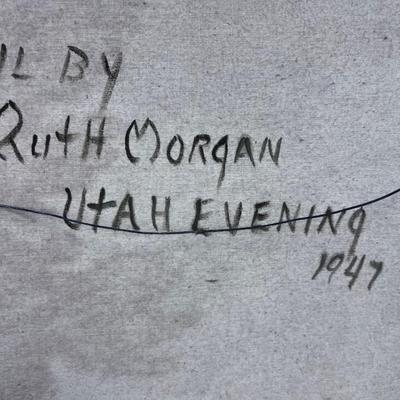 IL BY
RUTH MORGAN
UTAH EVENING
1947